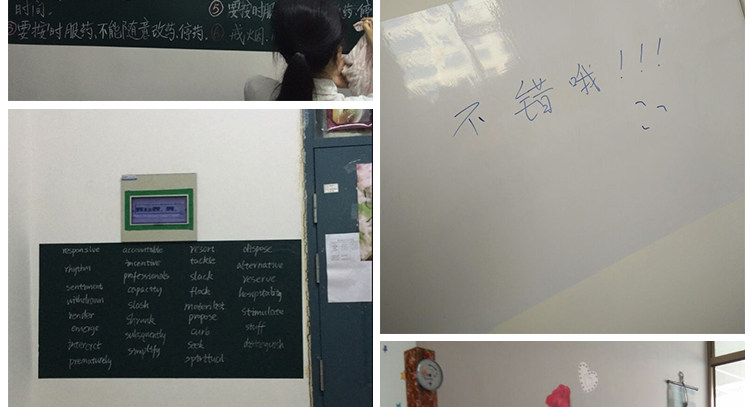 时间。
③要按时服药、不能随意改药、停药。
⑤要按时服
⑥戒烟
不错哦!!!
responsive accountable resort dispose
rhythm incentive tackle alternative
sentiment professionals slack reserve
withdrawn capacity flock hospitality
render slash propose stimulate
emerge shrunk curb stuff
interpret simplify seek distinguish
prematurely spiritual